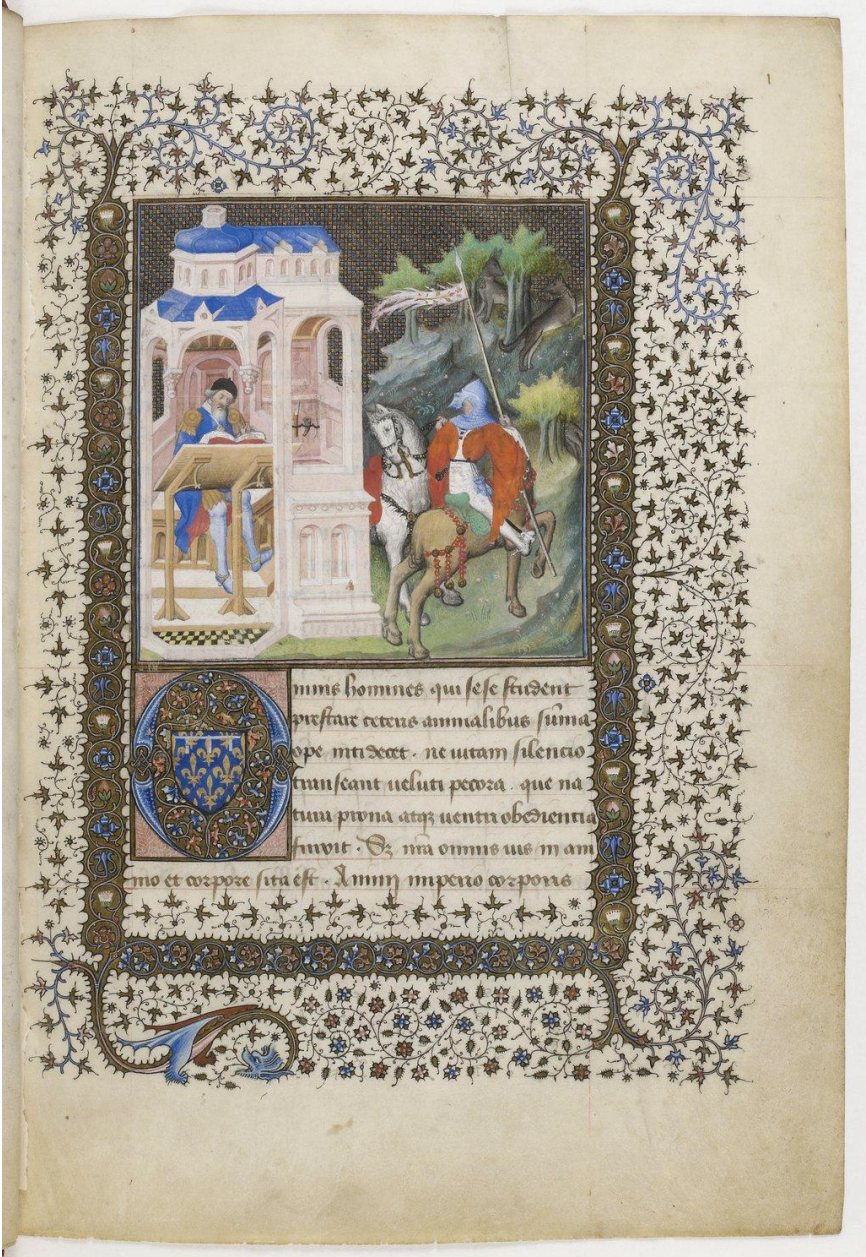 Omnis homines qui sese student
prestare ceteris animalibus suma
ope niti decet . ne uitam silencio
transeant ueluti pecora . que na
tura prona atqꝫ uentri obediencia
finxit . Sꝫ nr̄a omnis uis in ani
mo et corpore sita est . Animi imperio corporis